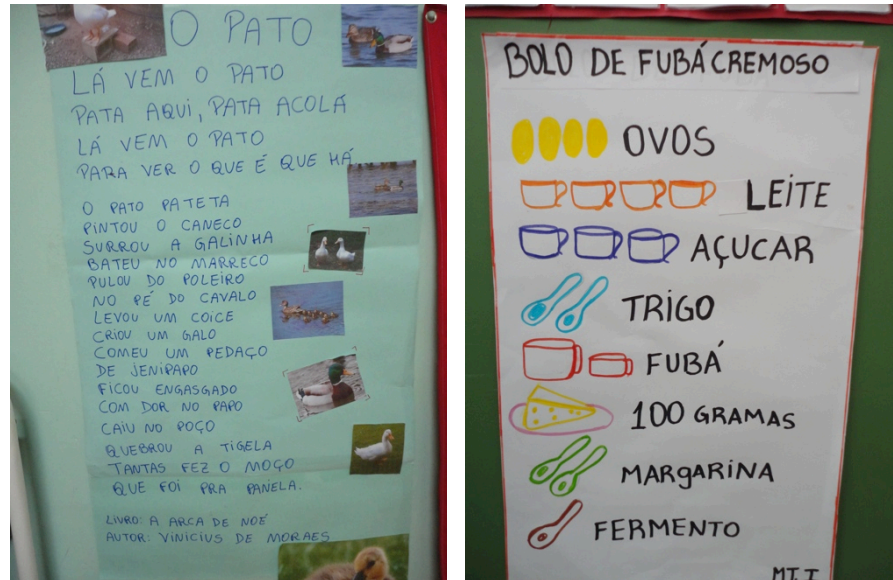 O PATO
LÁ VEM O PATO
PATA AQUI, PATA ACOLÁ
LÁ VEM O PATO
PARA VER O QUE É QUE HÁ.
O PATO PATETA
PINTOU O CANECO
SURROU A GALINHA
BATEU NO MARRECO
PULOU DO POLEIRO
NO PÉ DO CAVALO
LEVOU UM COICE
CRIOU UM GALO
COMEU UM PEDAÇO
DE JENIPAPO
FICOU ENGASGADO
COM DOR NO PAPO
CAIU NO POÇO
QUEBROU A TIGELA
TANTAS FEZ O MOÇO
QUE FOI PRA PANELA.
LIVRO: A ARCA DE NOÉ
AUTOR: VINICIUS DE MORAES
BOLO DE FUBÁ CREMOSO
OVOS
LEITE
AÇUCAR
TRIGO
FUBÁ
100 GRAMAS
MARGARINA
FERMENTO